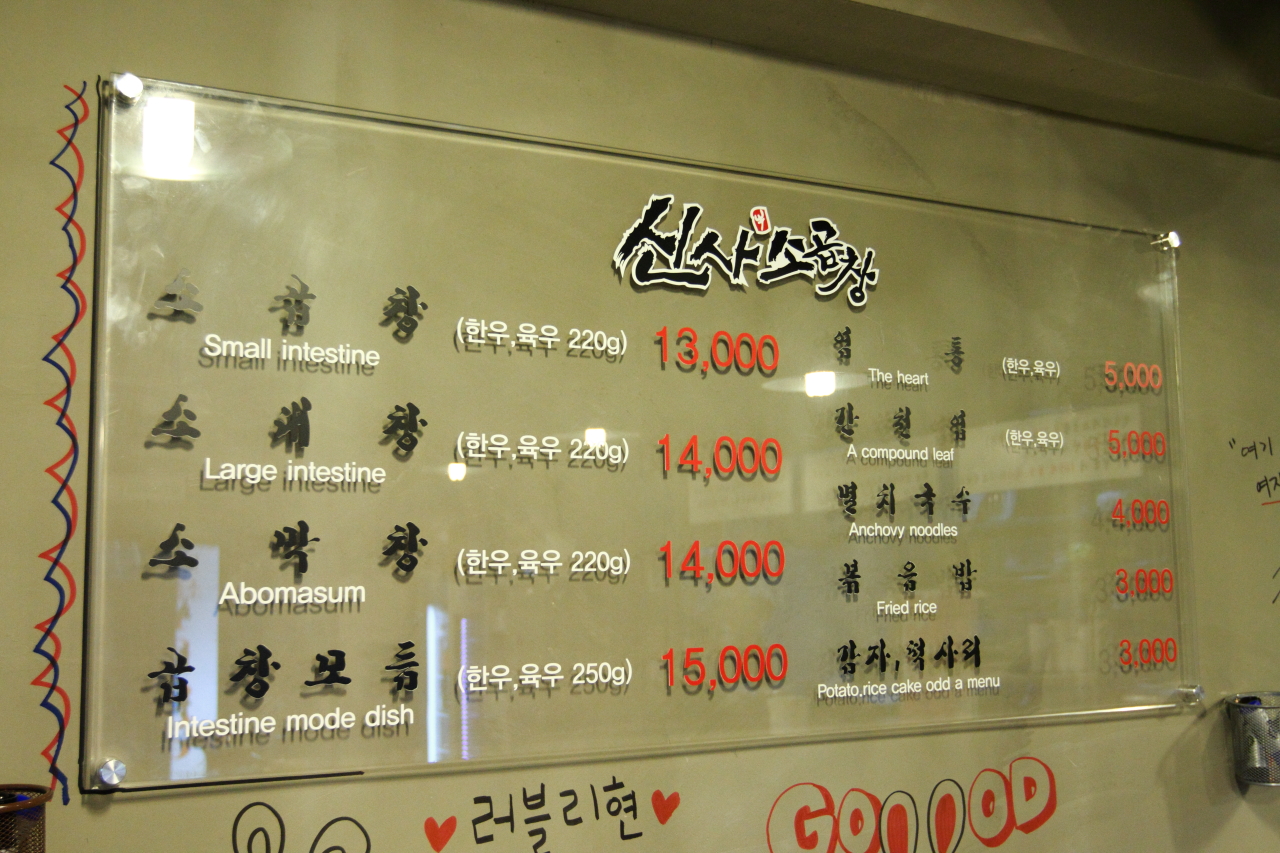 신사소곱창
소곱창 (한우,육우 220g) 13,000
Small intestine
소대창 (한우,육우 220g) 14,000
Large intestine
소막창 (한우,육우 220g) 14,000
Abomasum
곱창모듬 (한우,육우 250g) 15,000
Intestine mode dish
염통 (한우,육우) 5,000
The heart
간천엽 (한우,육우) 5,000
A compound leaf
멸치국수 4,000
Anchovy noodles
볶음밥 3,000
Fried rice
감자,떡사리 3,000
Potato,rice cake odd a menu
"여기
러블리현
GOOOOD